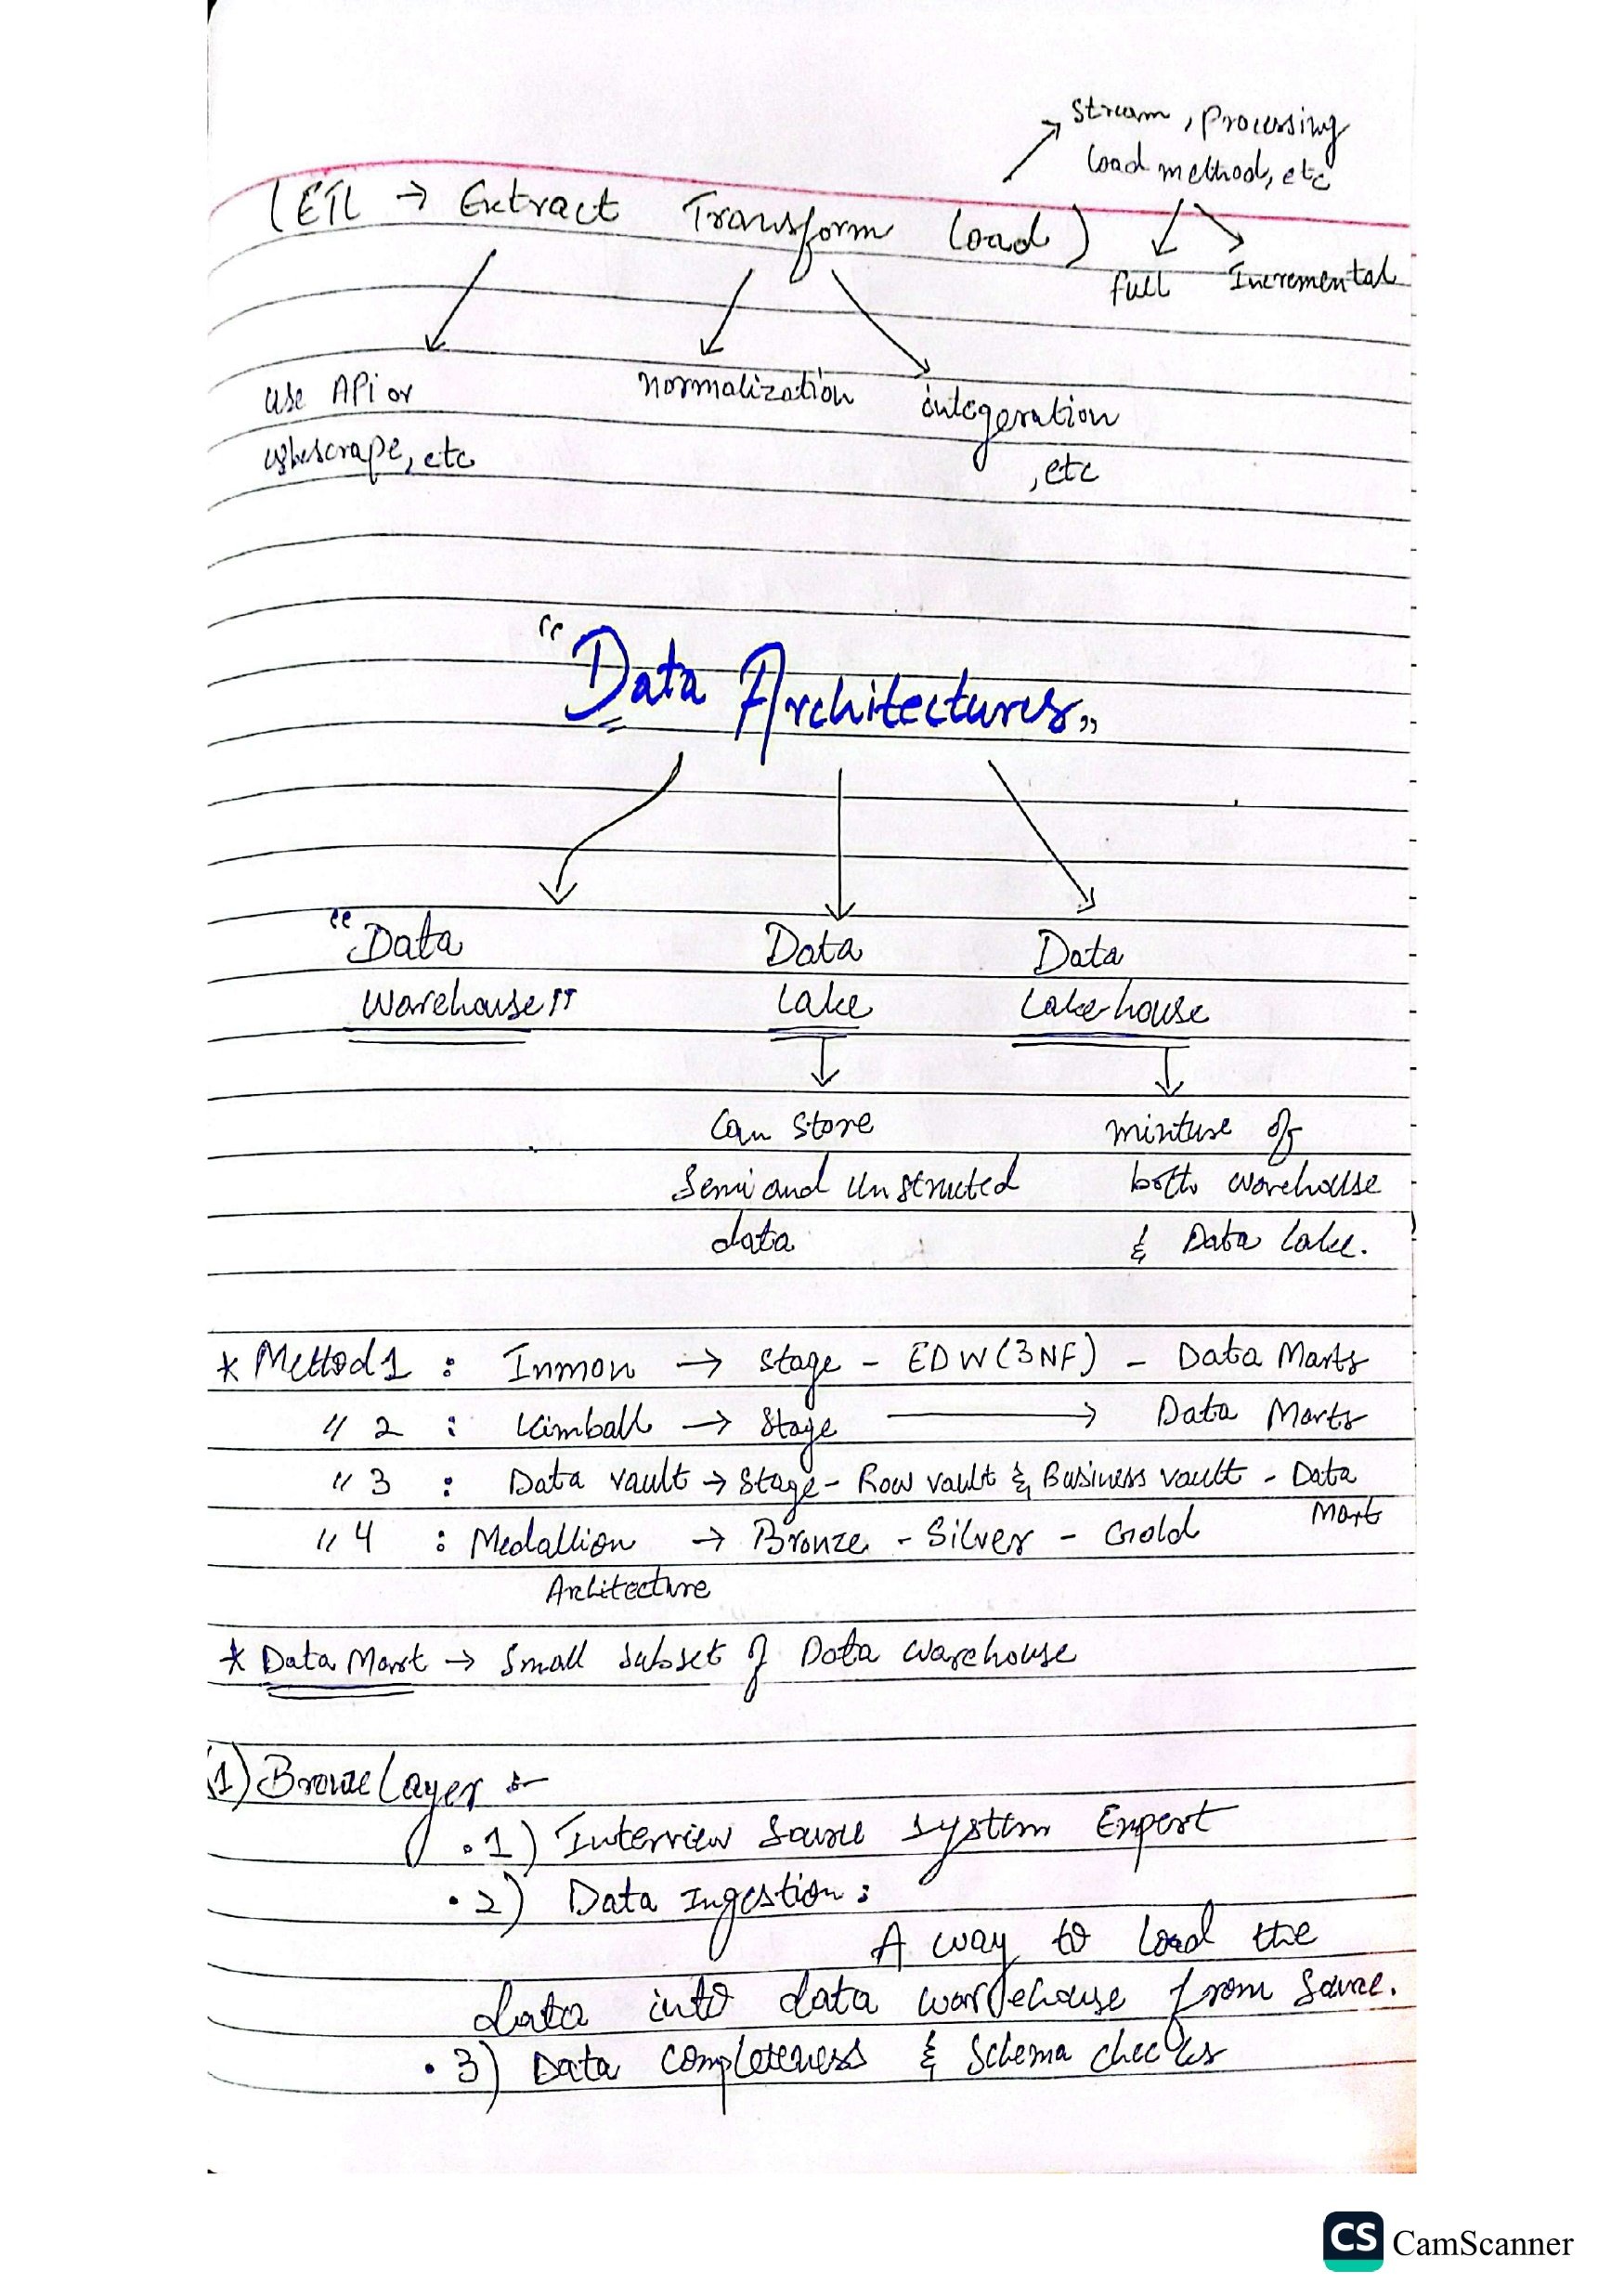 Stream, Processing
load method, etc
(ETL → Extract Transform Load)
full Incremental
use API or
webscrape, etc
normalization
integeration
, etc
"Data Architectures"
"Data
Warehouse"
Data
Lake
Data
Lakehouse
Can Store
Semi and Unstructed
data
mixture of
both warehouse
& Data Lake.
* Method 1 : Inmon → Stage - EDW(3NF) - Data Marts
" 2 : Kimball → Stage → Data Marts
" 3 : Data vault → Stage - Raw vault & Business vault - Data
Mart
" 4 : Medallion → Bronze - Silver - Gold
Architecture
* Data Mart → Small subset of Data Warehouse
1) Bronze Layer :-
.1) Interview Source System Expert
.2) Data Ingestion :
A way to load the
data into data warehouse from Source.
.3) Data Completeness & Schema checks
CS CamScanner